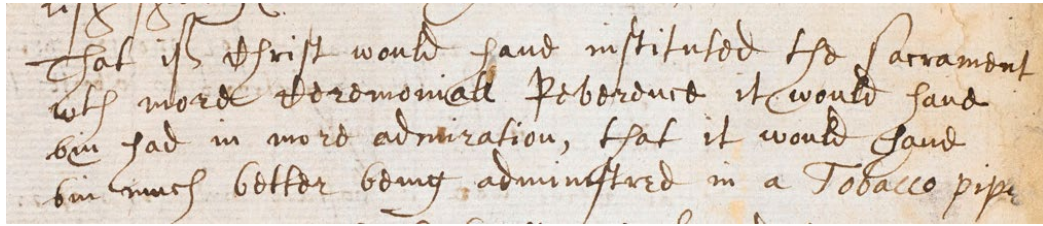 That if Christ would haue instituted the Sacrament
wth more Ceremoniall Reverence it would haue
bin had in more admiration, that it would haue
bin much better being administred in a Tobacco pipe